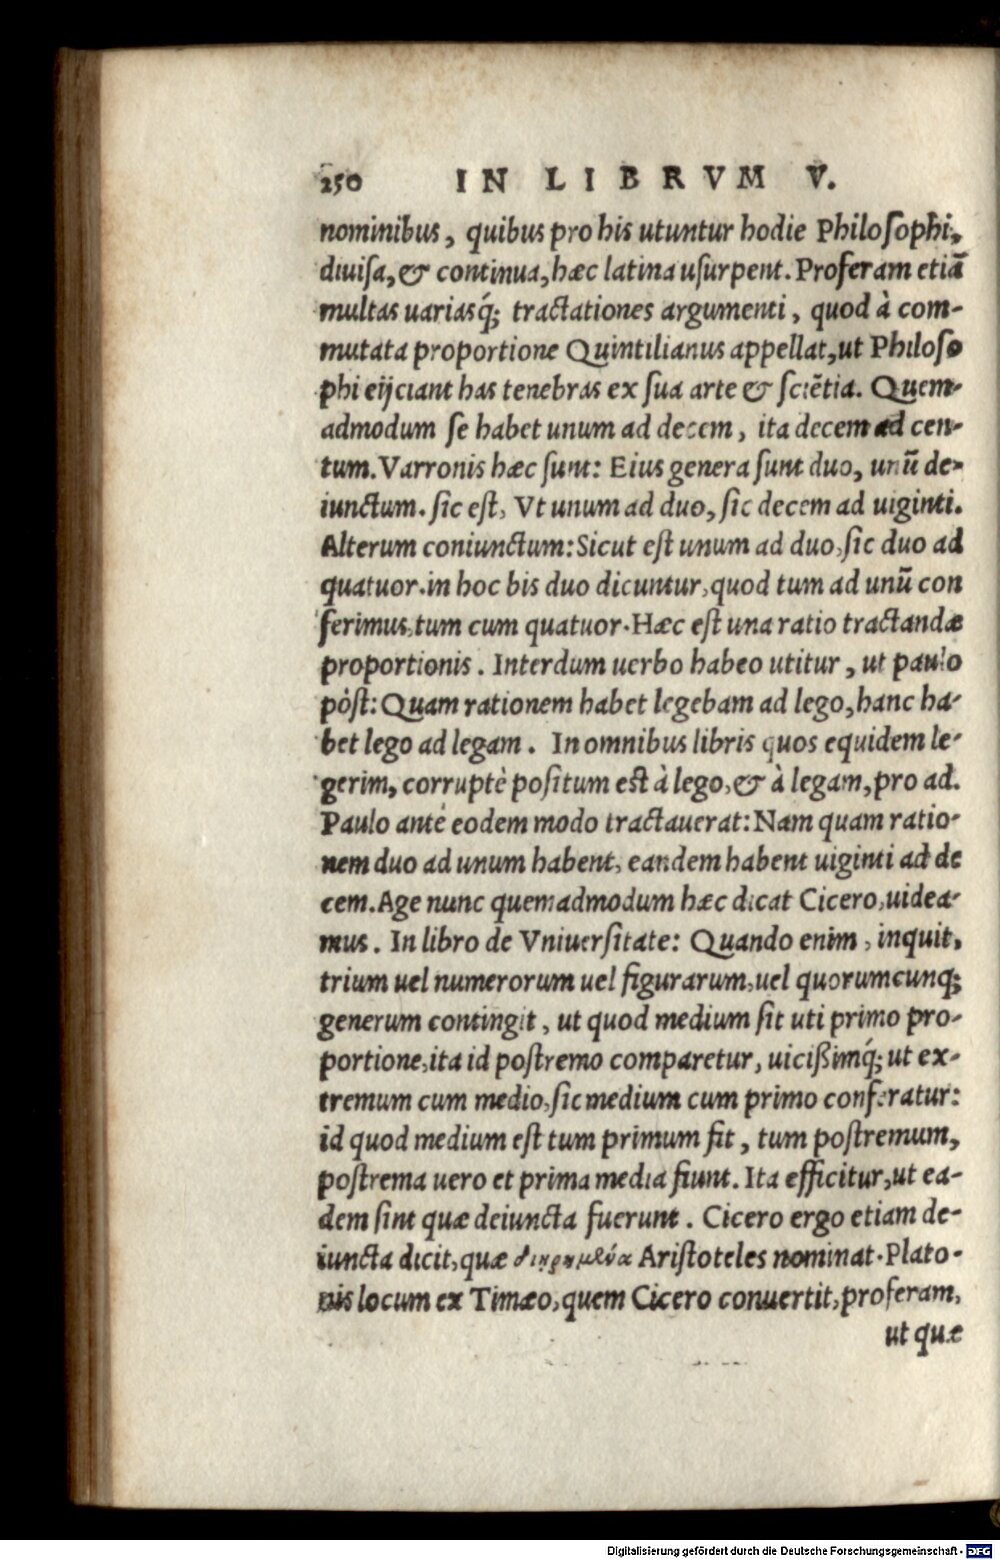 250 IN LIBRVM V.
nominibus, quibus pro his utuntur hodie Philosophi,
diuisa, & continua, hæc latina usurpent. Proferam etiã
multas uariasq́; tractationes argumenti, quod à com-
mutata proportione Quintilianus appellat, ut Philoso
phi eijciant has tenebras ex sua arte & sciẽtia. Quem-
admodum se habet unum ad decem, ita decem ad cen-
tum. Varronis hæc sunt: Eius genera sunt duo, unũ de-
iunctum. sic est, Vt unum ad duo, sic decem ad uiginti.
Alterum coniunctum: Sicut est unum ad duo, sic duo ad
quatuor. in hoc bis duo dicuntur, quod tum ad unũ con
ferimus, tum cum quatuor. Hæc est una ratio tractandæ
proportionis. Interdum uerbo habeo utitur, ut paulo
pòst: Quam rationem habet legebam ad lego, hanc ha-
bet lego ad legam. In omnibus libris quos equidem le-
gerim, corruptè positum est à lego, & à legam, pro ad.
Paulo antè eodem modo tractauerat: Nam quam ratio-
nem duo ad unum habent, eandem habent uiginti ad de
cem. Age nunc quemadmodum hæc dicat Cicero, uidea-
mus. In libro de Vniuersitate: Quando enim, inquit,
trium uel numerorum uel figurarum, uel quorumcunq;
generum contingit, ut quod medium sit uti primo pro-
portione, ita id postremo comparetur, uicißimq́; ut ex-
tremum cum medio, sic medium cum primo conferatur:
id quod medium est tum primum fit, tum postremum,
postrema uero et prima media fiunt. Ita efficitur, ut ea-
dem sint quæ deiuncta fuerunt. Cicero ergo etiam de-
iuncta dicit, quæ διῃρημένα Aristoteles nominat. Plato-
nis locum ex Timæo, quem Cicero conuertit, proferam,
ut quæ
Digitalisierung gefördert durch die Deutsche Forschungsgemeinschaft - DFG